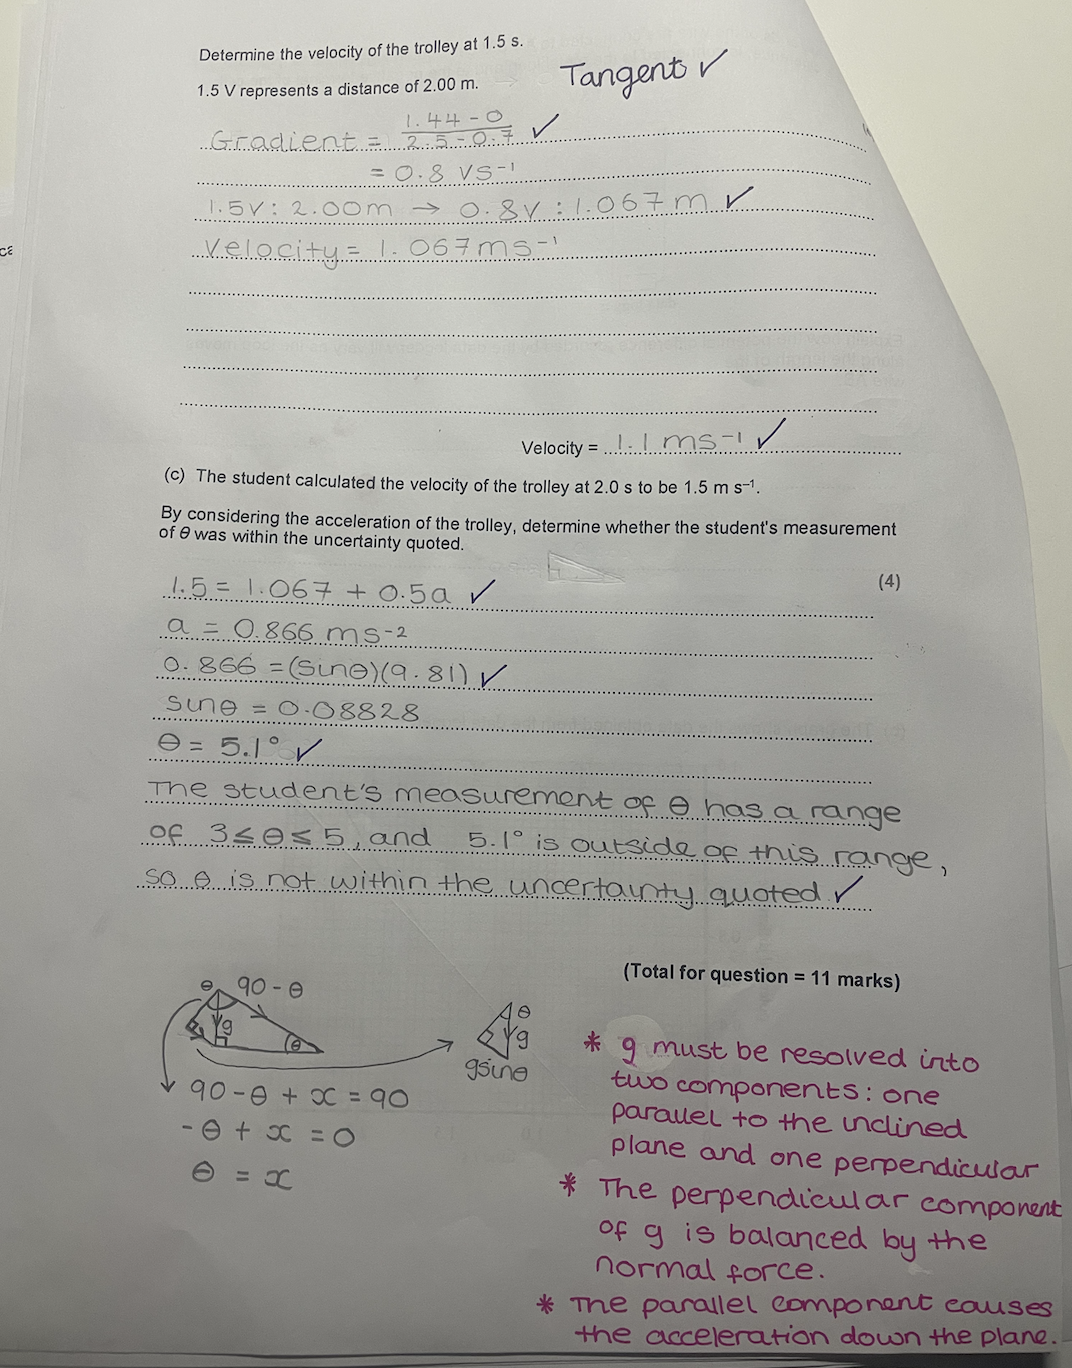 Determine the velocity of the trolley at 1.5 s.
Tangent ✓
1.5 V represents a distance of 2.00 m.
Gradient = 1.44 - 0 / 2.5 - 0.7 ✓
= 0.8 Vs⁻¹
1.5V : 2.00m → 0.8V : 1.067m ✓
Velocity = 1.067ms⁻¹
Velocity = 1.1 ms⁻¹ ✓
(c) The student calculated the velocity of the trolley at 2.0 s to be 1.5 m s⁻¹.
By considering the acceleration of the trolley, determine whether the student's measurement
of θ was within the uncertainty quoted.
(4)
1.5 = 1.067 + 0.5a ✓
a = 0.866 ms⁻²
0.866 = (sinθ)(9.81) ✓
sinθ = 0.08828
θ = 5.1° ✓
The student's measurement of θ has a range
of 3≤θ≤5, and 5.1° is outside of this range,
so θ is not within the uncertainty quoted. ✓
(Total for question = 11 marks)
θ 90 - θ
g
θ
θ
g
gsinθ
90 - θ + x = 90
-θ + x = 0
θ = x
* g must be resolved into
two components: one
parallel to the inclined
plane and one perpendicular
* The perpendicular component
of g is balanced by the
normal force.
* The parallel component causes
the acceleration down the plane.